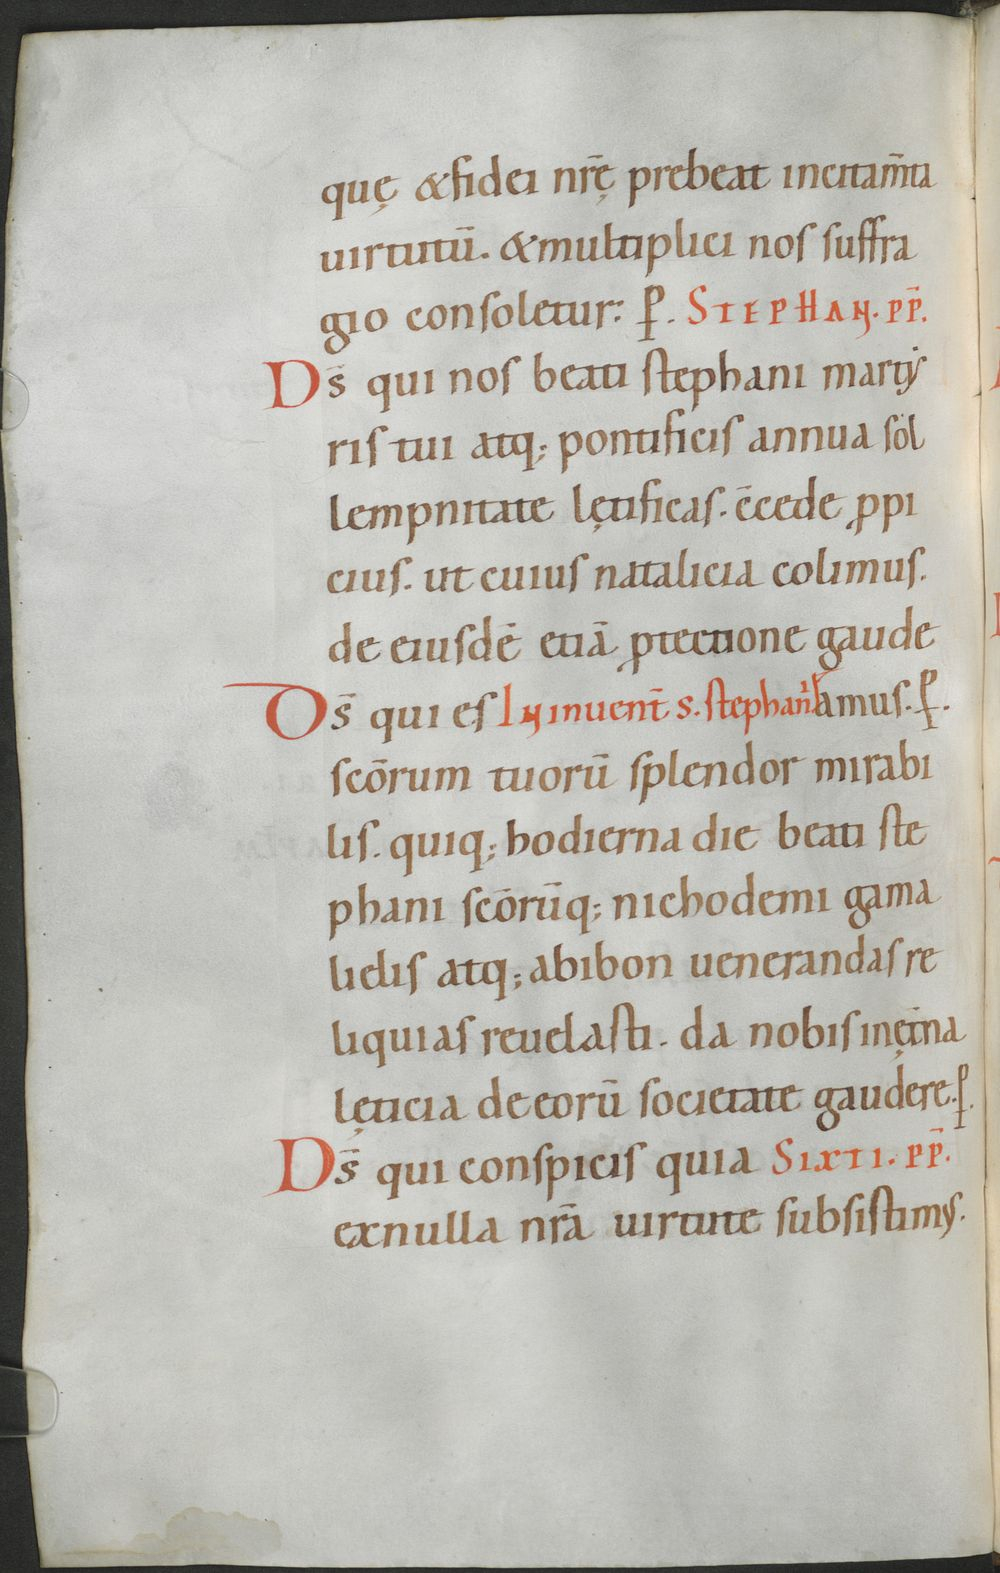 quę & fidei nr̄ę prebeat incitam̄ta
uirtutū. & multiplici nos suffra
gio consoletur: ꝑ. STEPHAN. PP̄.
Ds̄ qui nos beati stephani marty
ris tui atq; pontificis annua sol
lempnitate lętificas. c̄cede ꝓpi
cius. ut cuius natalicia colimus.
de eiusdē etiā ꝓtectione gaude
amus. ꝑ.
IN inuent̄ s. stephani
Ds̄ qui es
scōrum tuorū splendor mirabi
lis. quiq; hodierna die beati ste
phani scōrūq; nichodemi gama
lielis atq; abibon uenerandas re
liquias reuelasti. da nobis in ęt̄na
lęticia de eorū societate gaudere. ꝑ.
Ds̄ qui conspicis quia SIXTI. PP̄.
ex nulla nr̄a uirtute subsistimꝰ.